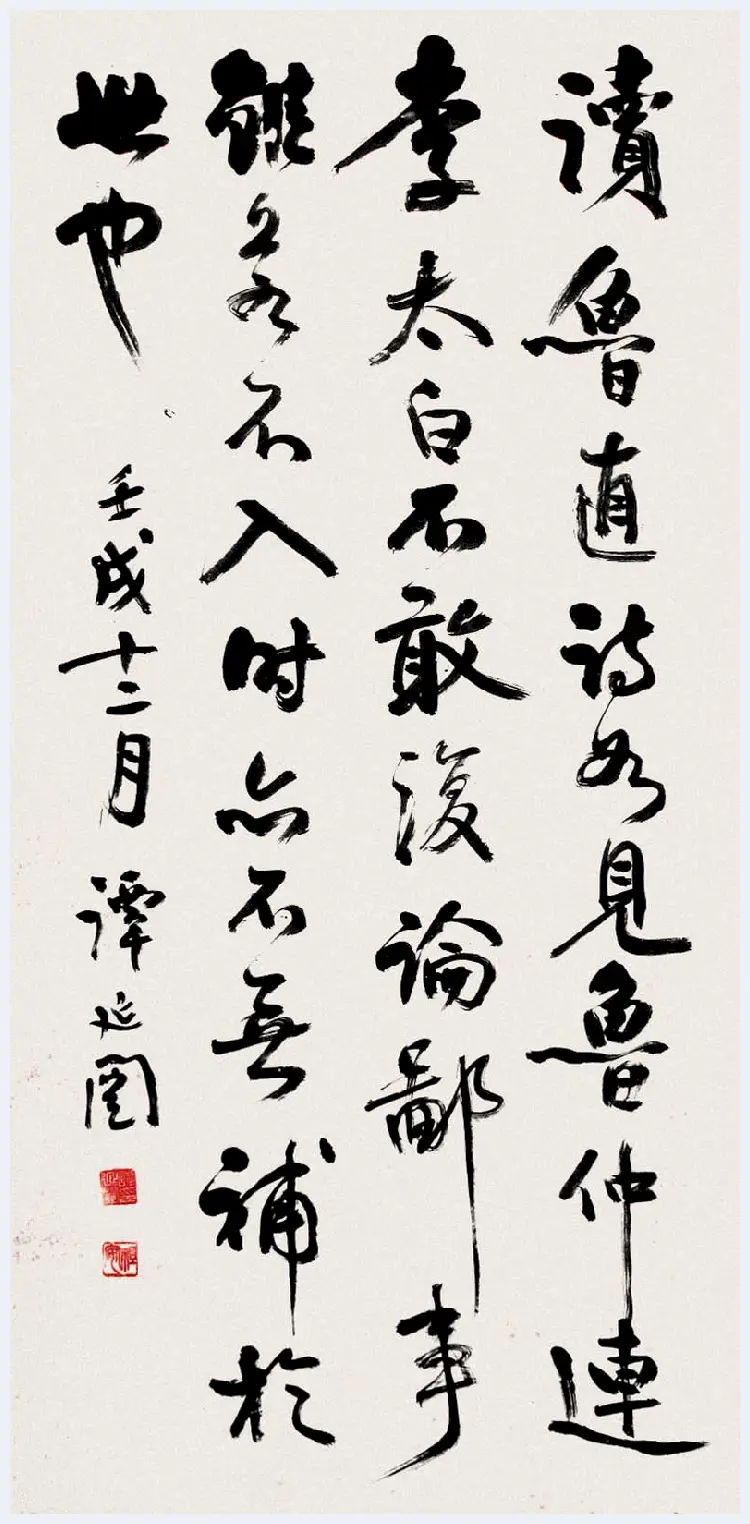 讀魯直詩如見魯仲連
李太白不敢復論鄙事
雖若不入時亦不無補於
世也
壬戌十二月 譚延闓